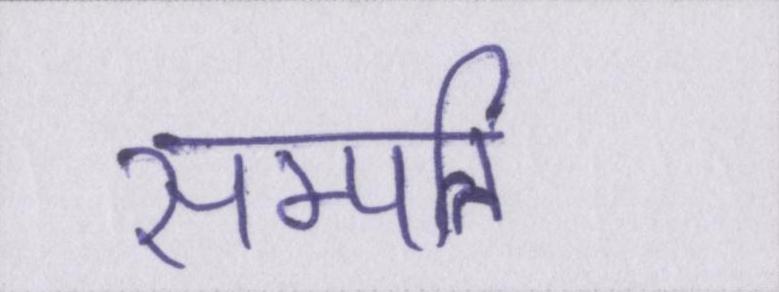 सम्पत्ति